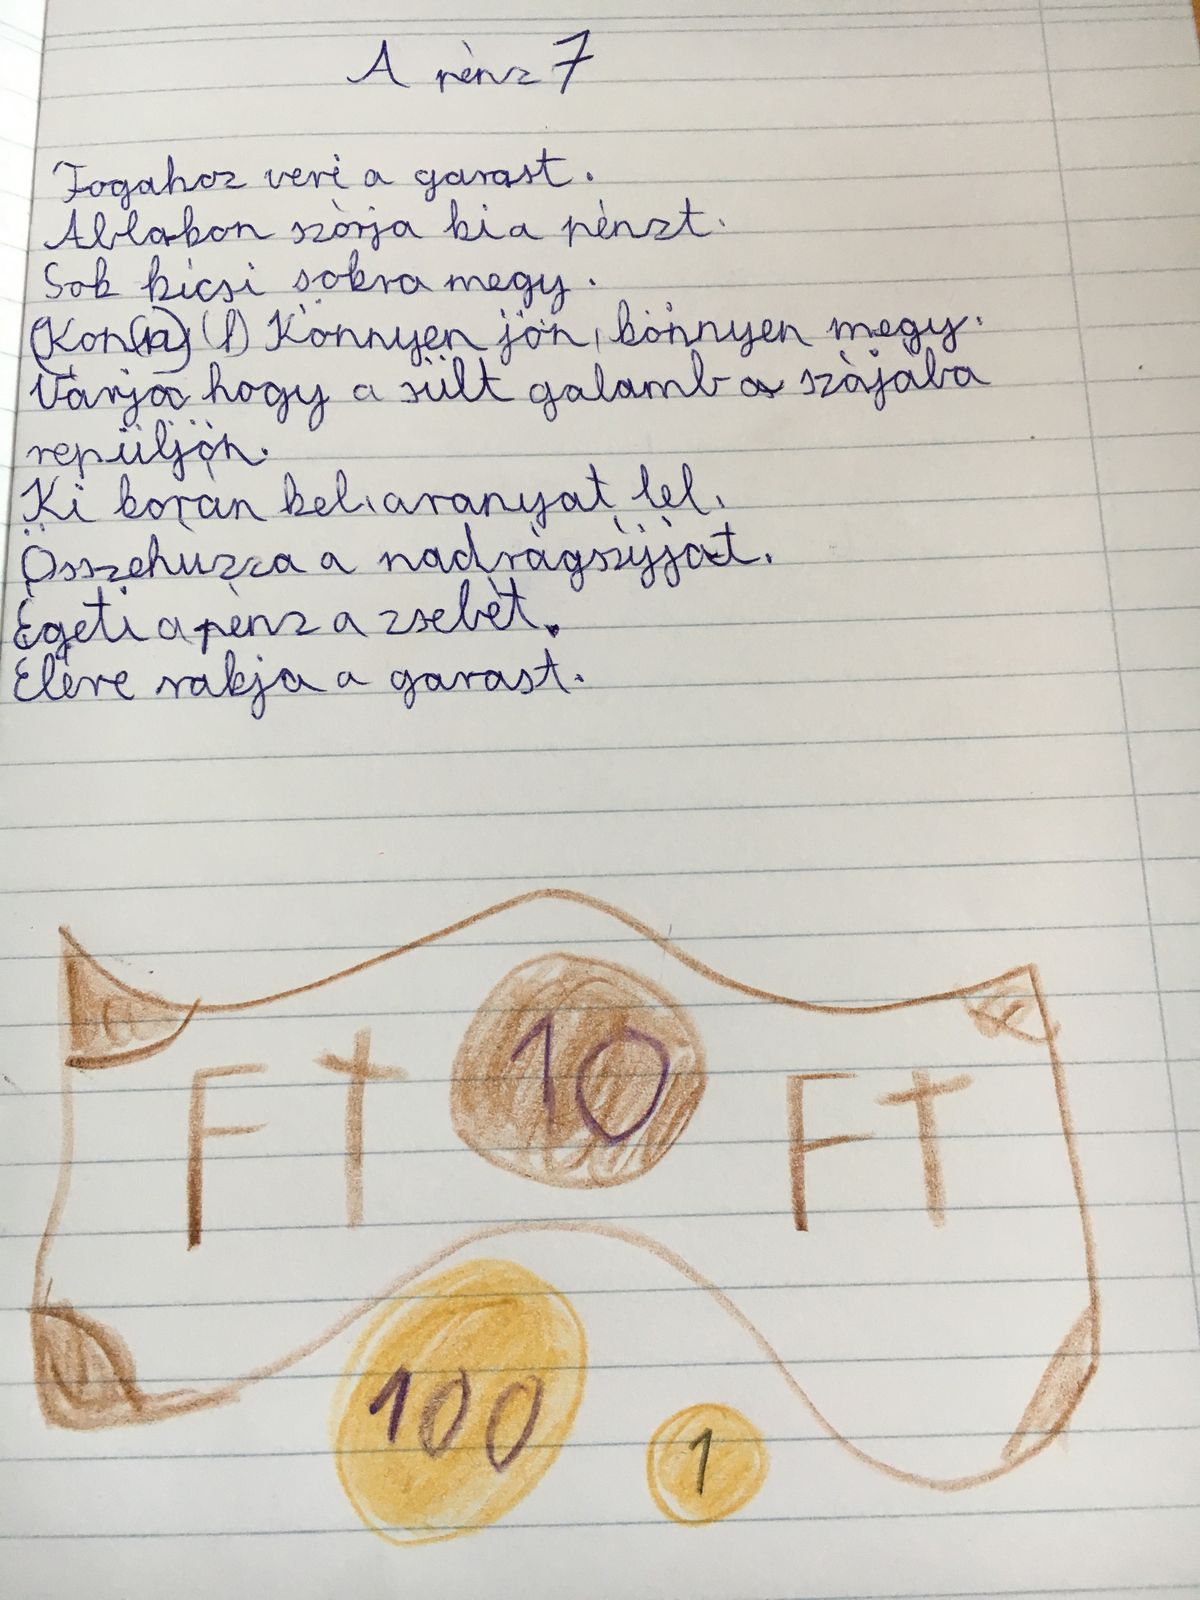 A pénz 7
Fogahoz veri a garast.
Ablakon szórja ki a pénzt.
Sok kicsi sokra megy.
(Kon(n) (l) Könnyen jön, könnyen megy.
Várja hogy a sült galamb a szájába
repüljön.
Ki korán kel, aranyat lel.
Összehúzza a nadrágszíjját.
Égeti a pénz a zsebét.
Élére rakja a garast.
10
FT FT
100
1